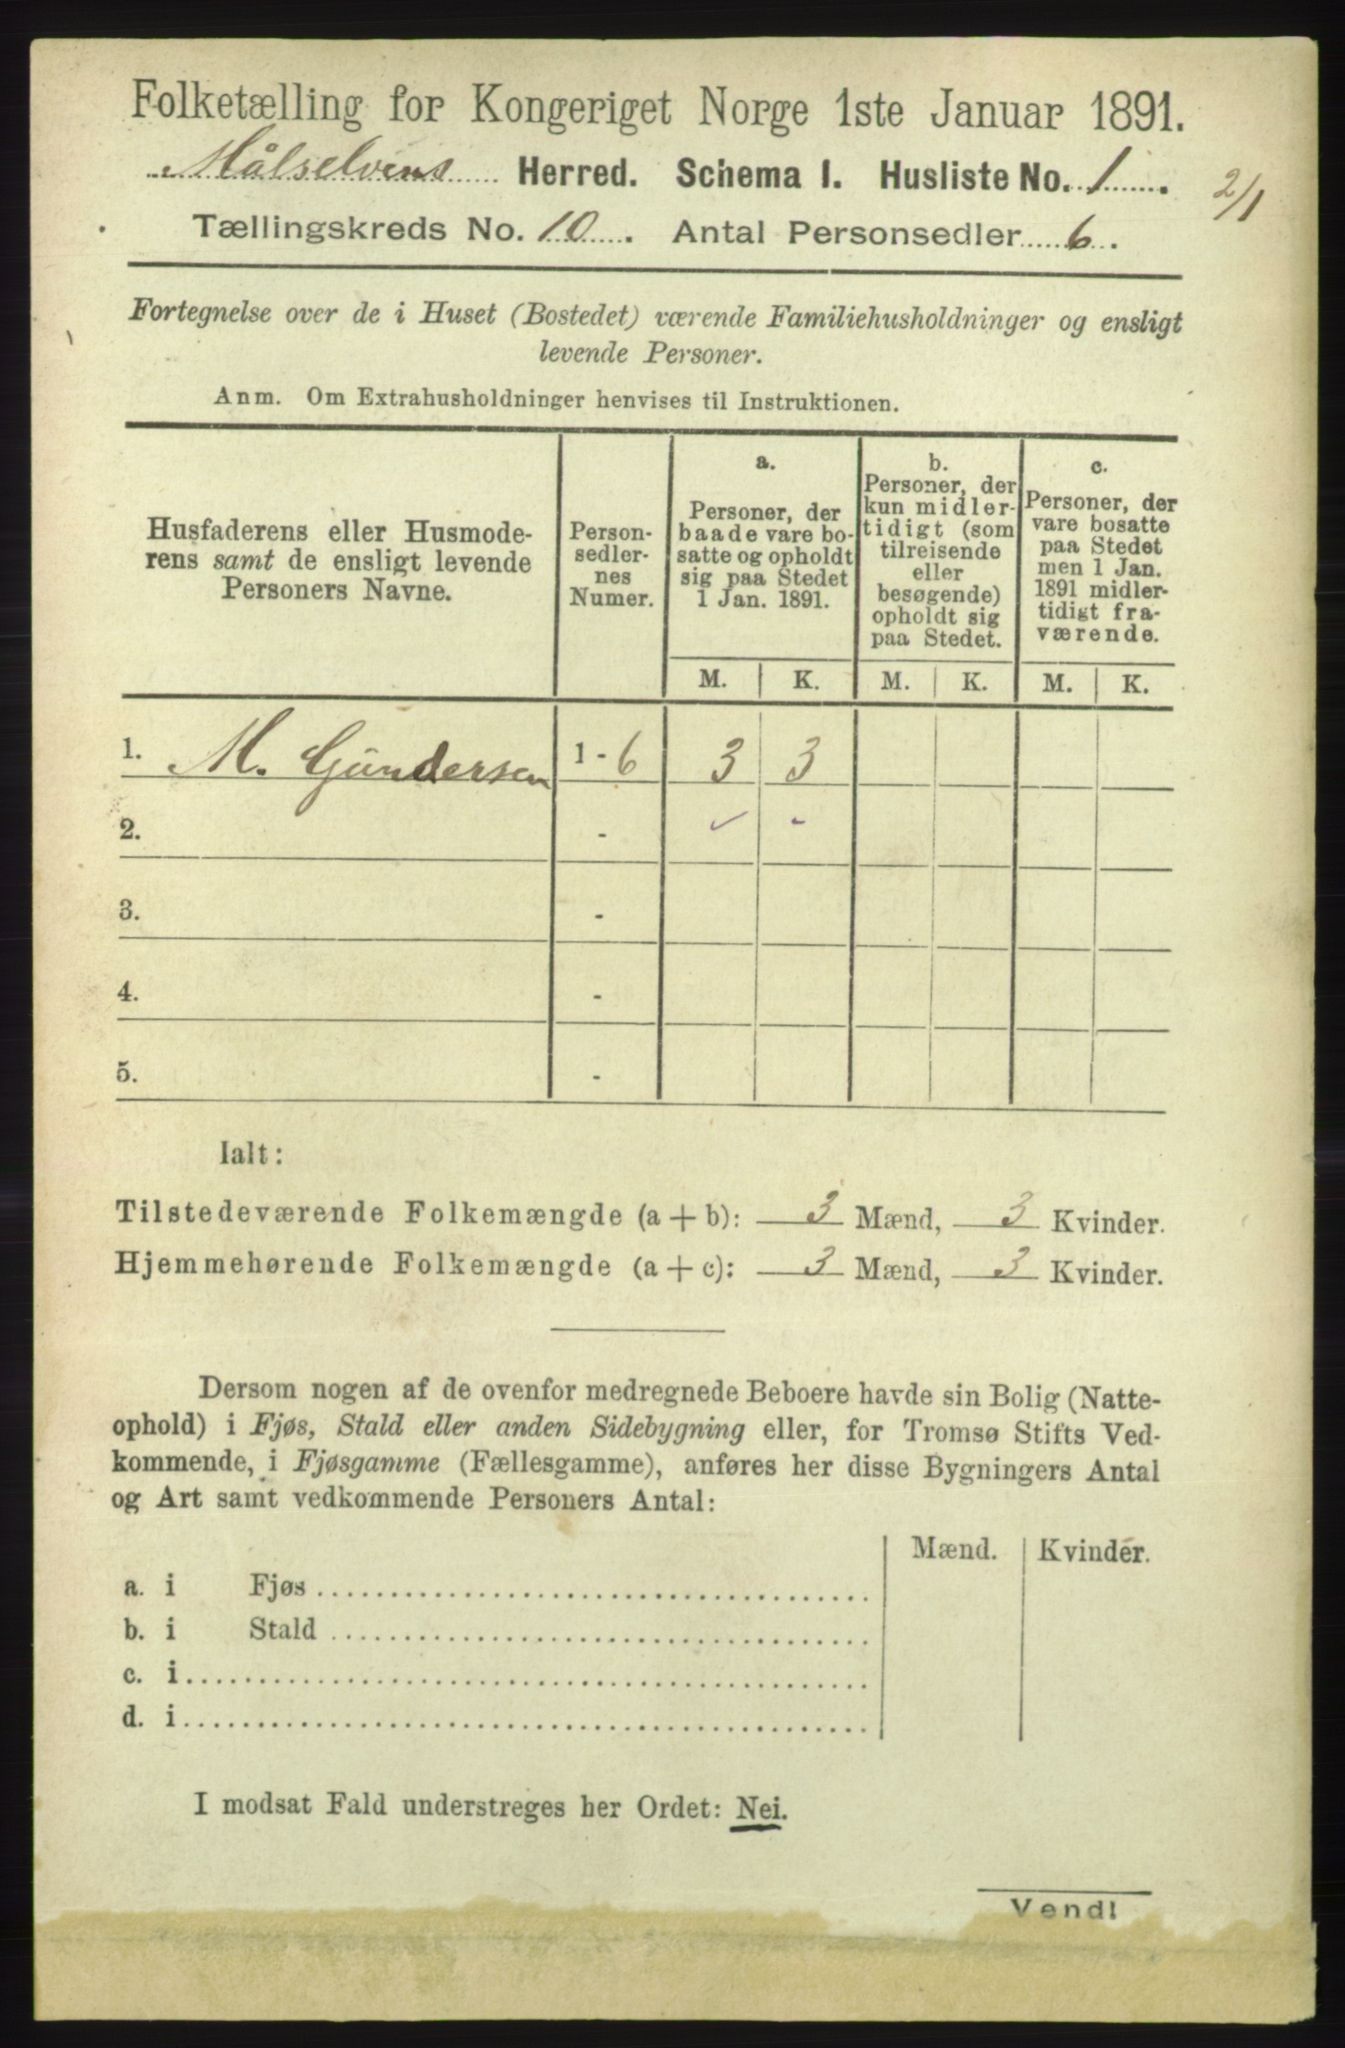 Folketælling for Kongeriget Norge 1ste Januar 1891.
Målselvens Herred. Schema I. Husliste No. 1.
2/1
Tællingskreds No. 10. Antal Personsedler 6.
Fortegnelse over de i Huset (Bostedet) værende Familiehusholdninger og ensligt
levende Personer.
Anm. Om Extrahusholdninger henvises til Instruktionen.
Husfaderens eller Husmode-
rens samt de ensligt levende
Personers Navne.
Person-
sedler-
nes
Numer.
a.
Personer, der
baade vare bo-
satte og opholdt
sig paa Stedet
1 Jan. 1891.
b.
Personer, der
kun midler-
tidigt (som
tilreisende
eller
besøgende)
opholdt sig
paa Stedet.
c.
Personer, der
vare bosatte
paa Stedet
men 1 Jan.
1891 midler-
tidigt fra-
værende.
M. K. M. K. M. K.
1. M. Gundersen 1 - 6 3 3
2. - ✓ -
3. -
4. -
5. -
Ialt:
Tilstedeværende Folkemængde (a + b): 3 Mænd, 3 Kvinder.
Hjemmehørende Folkemængde (a + c): 3 Mænd, 3 Kvinder.
Dersom nogen af de ovenfor medregnede Beboere havde sin Bolig (Natte-
ophold) i Fjøs, Stald eller anden Sidebygning eller, for Tromsø Stifts Ved-
kommende, i Fjøsgamme (Fællesgamme), anføres her disse Bygningers Antal
og Art samt vedkommende Personers Antal:
Mænd. Kvinder.
a. i Fjøs
b. i Stald
c. i
d. i
I modsat Fald understreges her Ordet: Nei.
Vend!